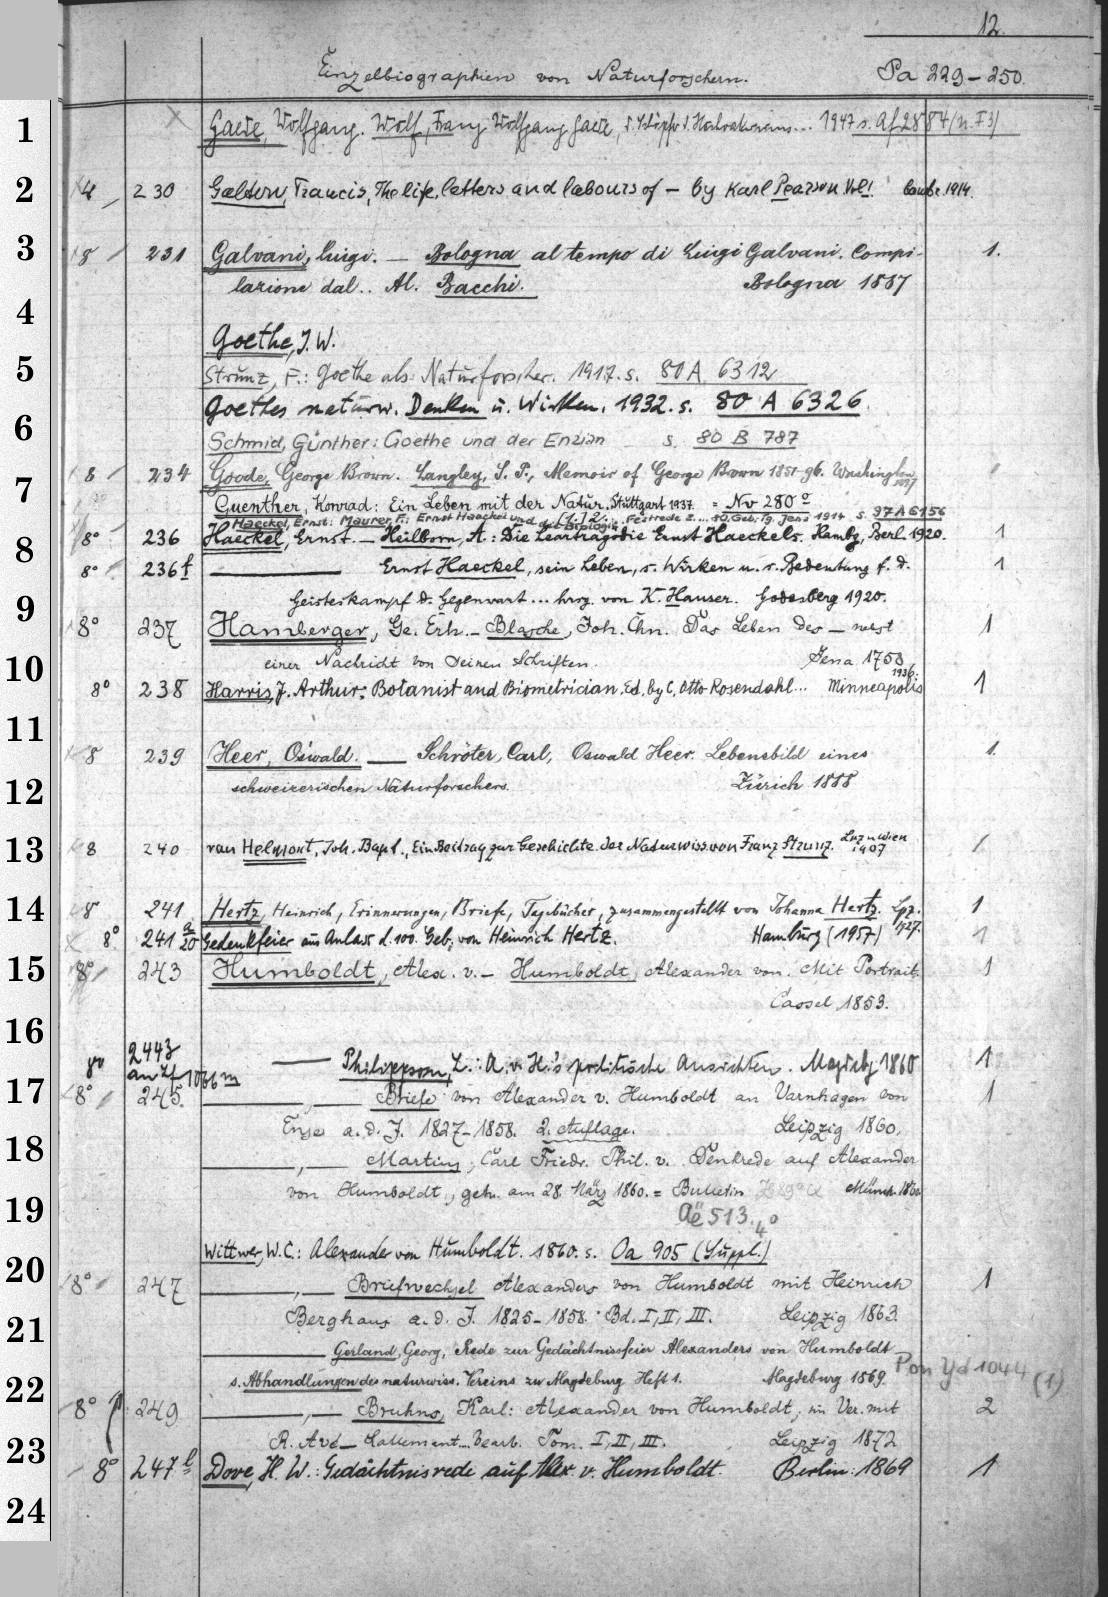 12.
Einzelbiographien von Naturforschern. Pa 229–250.
1 Gaede, Wolfgang. Wolf, Franz Wolfgang Gaede, d. Schöpfer d. Hochvakuums... 1947 s. Af 2884 (n. F 3)
2 4 230 Galton, Francis, The life, letters and labours of – by Karl Pearson. Vol I. Cambr. 1914.
3 8 231 Galvani, Luigi. — Bologna al tempo di Luigi Galvani. Compi- 1.
lazione dal.. Al. Bacchi. Bologna 1887
4
Goethe, J. W.
5 Strunz, F.: Goethe als Naturforscher. 1917. s. 80 A 6312
Goethes naturw. Denken u. Wirken. 1932. s. 80 A 6326.
6 Schmid, Günther: Goethe und der Enzian s. 80 B 787
8 234 Goode, George Brown. Langley, S. P., Memoir of George Brown 1851–96. Washington 1897
7 Guenther, Konrad: Ein Leben mit der Natur. Stuttgart 1937. = Nv 280°
Haeckel, Ernst: Maurer, F.: Ernst Haeckel und die Biologie. Festrede z. ... 80. Geb. Tg. Jena 1914 s. 97 A 6156
8 8° 236 Haeckel, Ernst. — Heilborn, A: Die Leartragödie Ernst Haeckels. Hambg, Berl. 1920. 1
8° 236 f — Ernst Haeckel, sein Leben, s. Wirken u. s. Bedeutung f. d. 1
9 Geisteskampf d. Gegenwart ... hrsg. von K. Hauser. Godesberg 1920.
8° 237 Hamberger, Ge. Erh. – Blasche, Joh. Chn. Das Leben des – nebst 1
10 einer Nachricht von seinen Schriften. Jena 1758
8° 238 Harris, J. Arthur: Botanist and Biometrician. Ed. by C. Otto Rosendahl... Minneapolis 1936. 1
11
8 239 Heer, Oswald. — Schröter, Carl, Oswald Heer. Lebensbild eines 1.
12 schweizerischen Naturforschers. Zürich 1888
13 8 240 van Helmont, Joh. Bapt., Ein Beitrag zur Geschichte der Naturwiss. von Franz Strunz. Lpz u Wien 1907 1
14 8 241 Hertz, Heinrich, Erinnerungen, Briefe, Tagebücher, zusammengestellt von Johanna Hertz. Lpz. 1927. 1
8° 241 a/20 Gedenkfeier aus Anlass d. 100. Geb. von Heinrich Hertz. Hamburg (1957) 1
15 8° 243 Humboldt, Alex. v. – Humboldt, Alexander von. Mit Portrait. 1
Cassel 1853.
16
8° 2443 — Philippson, L.: A. v. H.'s politische Ansichten. Magdebg 1860 1
an Zf 1066 m
17 8° 245. —,— Briefe von Alexander v. Humboldt an Varnhagen von 1
Ense a. d. J. 1827–1858. 2. Auflage. Leipzig 1860.
18 —,— Martius, Carl Friedr. Phil. v. Denkrede auf Alexander
von Humboldt, geh. am 28. März 1860. = Bulletin Münch. 1860
19 Aë 513. 4°
Wittwer, W. C.: Alexander von Humboldt. 1860. s. Oa 905 (Suppl.)
20 8° 247 —,— Briefwechsel Alexanders von Humboldt mit Heinrich 1
Berghaus a. d. J. 1825–1858. Bd. I, II, III. Leipzig 1863.
21 — Gerland, Georg, Rede zur Gedächtnissfeier Alexanders von Humboldt
s. Abhandlungen des naturwiss. Vereins zu Magdeburg Heft 1. Magdeburg 1869. Pon Yd 1044 (1)
22
8° 249 —,— Bruhns, Karl: Alexander von Humboldt, im Ver. mit 2
R. Avé–Lallement... bearb. Tom. I, II, III. Leipzig 1872
23 8° 247 l Dove, H. W.: Gedächtnisrede auf Alex. v. Humboldt. Berlin: 1869 1
24